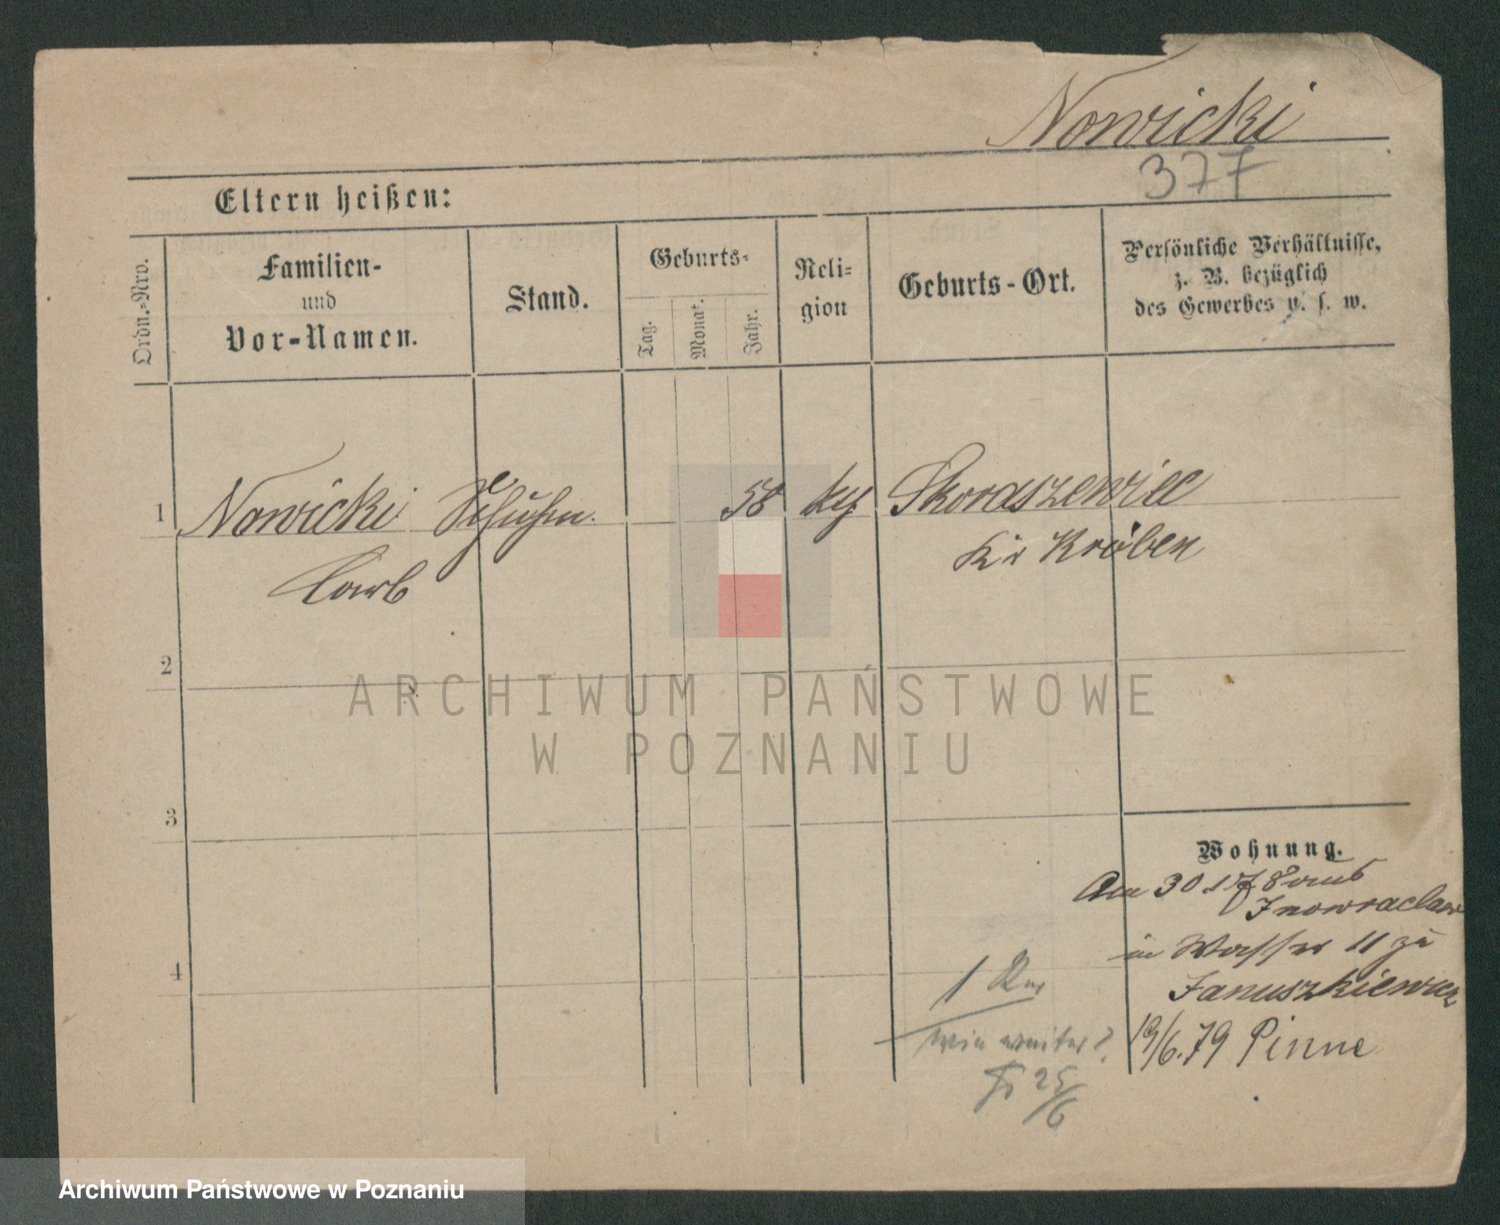 Nowicki
377
Eltern heißen:
Ordn.-Nro.
Familien-
und
Vor-Namen.
Stand.
Geburts-
Tag.
Monat.
Jahr.
Reli-
gion
Geburts-Ort.
Persönliche Verhältnisse,
z. B. bezüglich
des Gewerbes u. s. w.
1 Nowicki Schuhm. 58 Skoraszewice
Kr Kröben
2
ARCHIWUM PAŃSTWOWE
W POZNANIU
3
Wohnung.
Am 30
Inowraclaw
4
in Wasser 11 zu
Januszkiewicz
19/6.79 Pinne
1
25/6
Archiwum Państwowe w Poznaniu